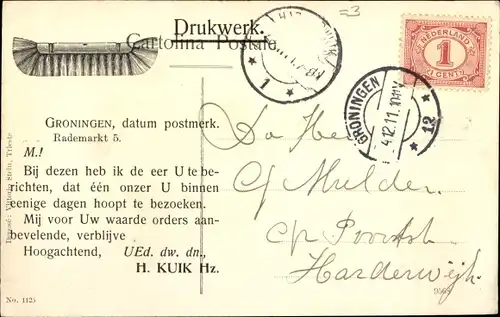 Drukwerk.
Cartolina Postale
=3
NEDERLAND
1
CENT
GRONINGEN
4.12.11.10
12
1
GRONINGEN, datum postmerk.
Rademarkt 5.
M.!
Bij dezen heb ik de eer U te be-
richten, dat één onzer U binnen
eenige dagen hoopt te bezoeken.
Mij voor Uw waarde orders aan-
bevelende, verblijve
Hoogachtend, UEd. dw. dn.,
H. KUIK Hz.
Vittorio Stein, Trieste
No. 1125
Mulder
Harderwijk